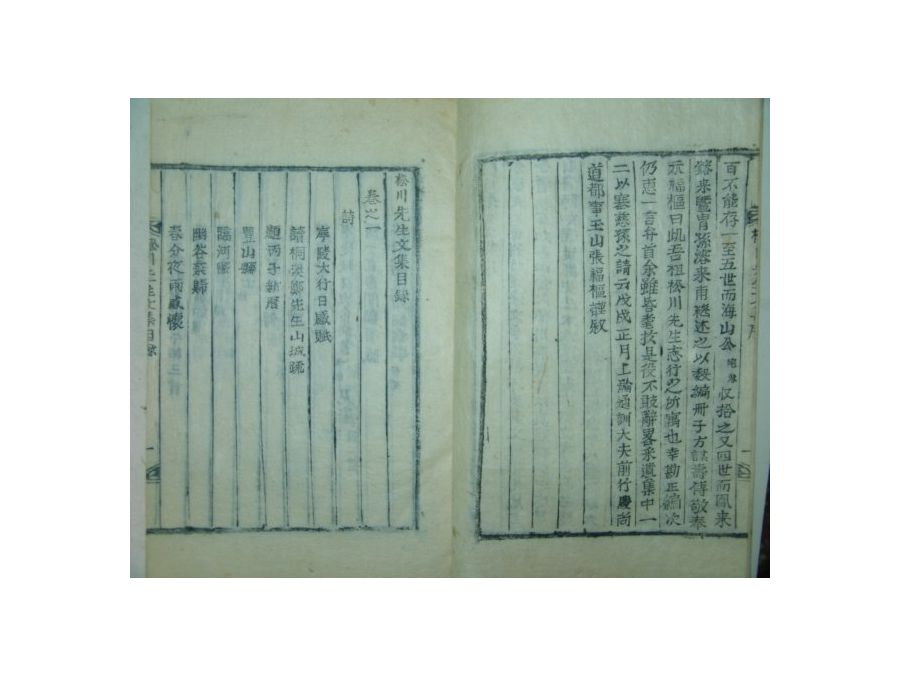 百不能存一至五世而海山公收拾之又四世而鳳来
鎔来曁胄孫濩来甫継述之以数編冊子方謀壽傳敬奉
示福樞曰此吾祖松川先生志行之所寓也幸勘正編次
仍惠一言弁首余雖昏耄於是役不敢辭畧采遺集中一
二以塞慈孫之請云戊戌正月上澣通訓大夫前行慶尚
道都事玉山張福樞謹敍
松川先生文集目録
卷之一
詩
寧陵大行日感賦
讀桐溪鄭先生山城疏
題丙子新曆
豊山縣
臨河縣
幽谷衰歸
春分夜雨感懷
松川先生文集目録
一